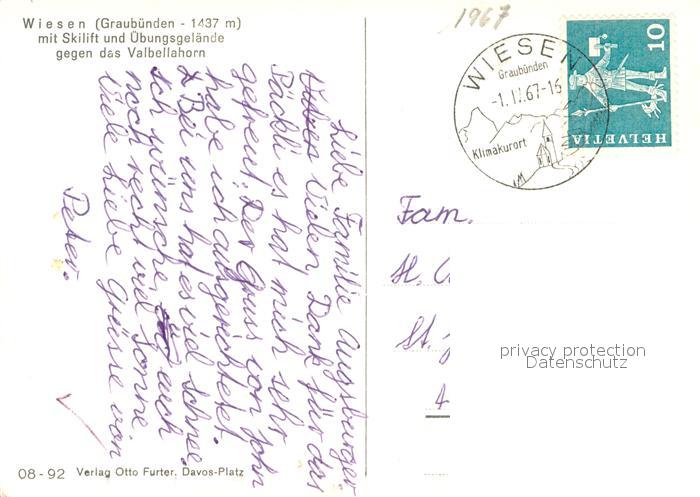 Wiesen (Graubünden - 1437 m)
mit Skilift und Übungsgelände
gegen das Valbellahorn
1967
WIESEN
Graubünden
-1. II. 67-16
Klimakurort
10
HELVETIA
Liebe Familie Augsburger
Vielen Dank für das
Päckli es hat mich sehr
gefreut. Der Gruss von John
habe ich ausgerichtet.
Bei uns hat es viel Schnee.
Ich wünsche euch
noch recht viel Sonne
Viele Liebe Grüsse von
Peter.
Fam.
St.
privacy protection
Datenschutz
08-92 Verlag Otto Furter. Davos-Platz